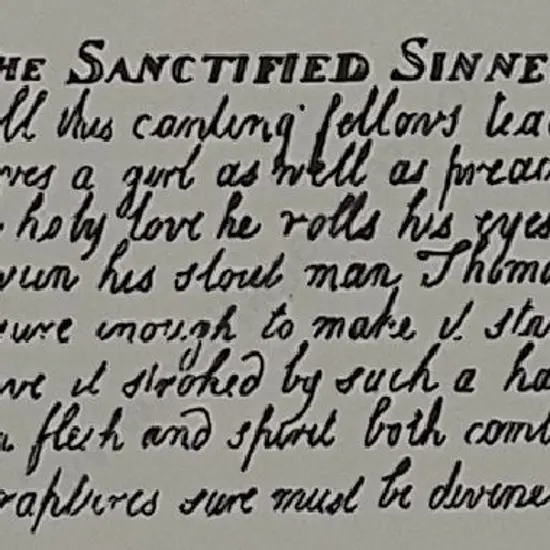 HE SANCTIFIED SINNE
ll this canting fellows tea
ves a girl as well as preac
holy love he rolls his eyes
his stout man Thoma
ure enough to make it sta
ve it stroked by such a ha
flesh and spirit both comb
raptures sure must be divine